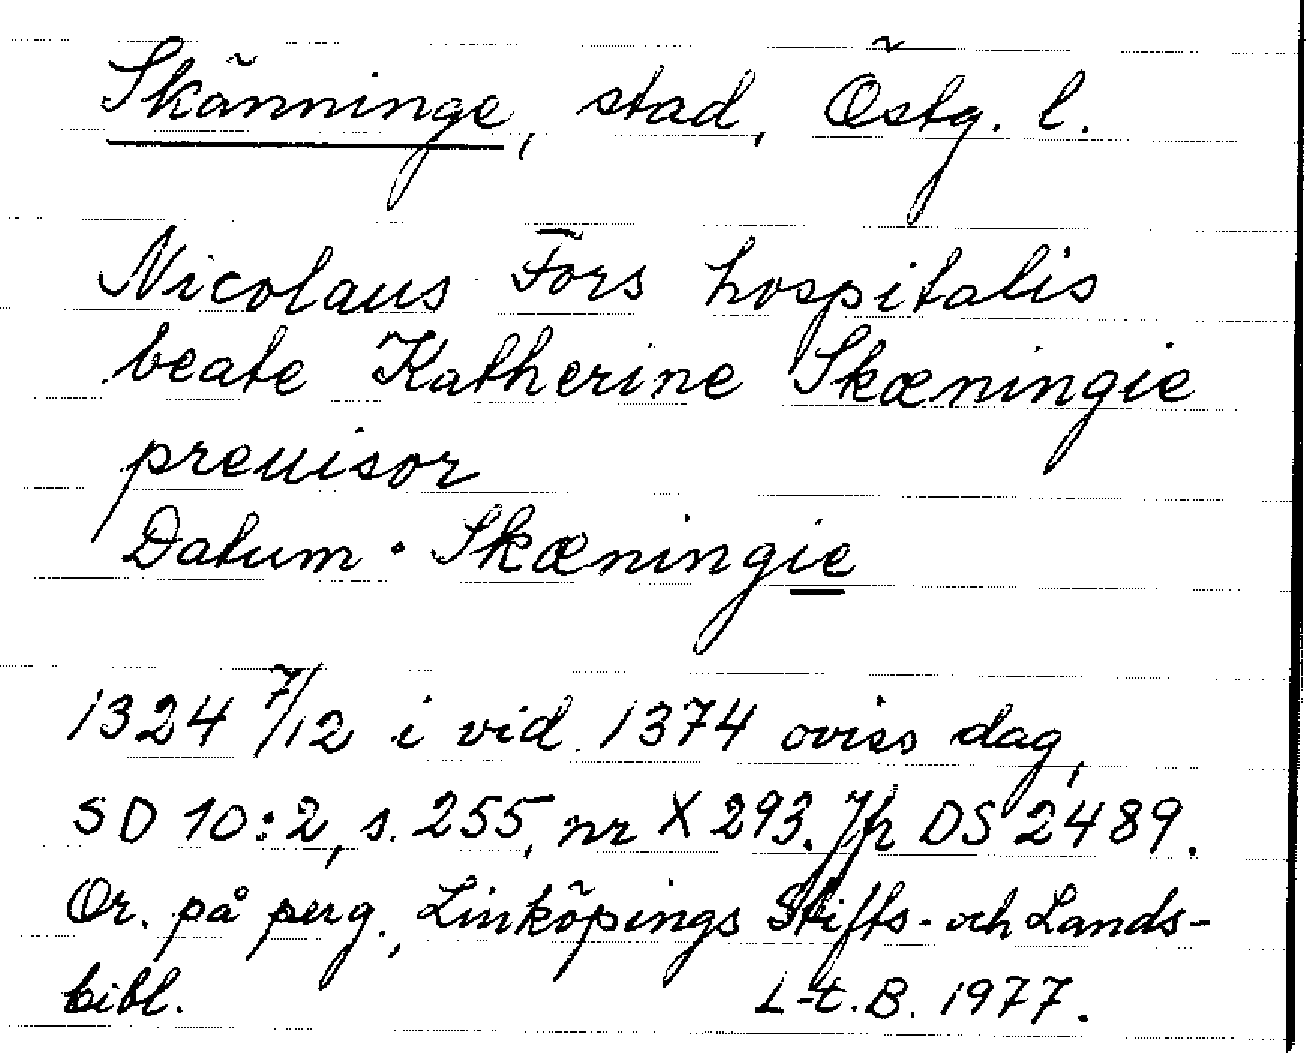 Skänninge, stad, Östg. l.
Nicolaus Förs hospitalis
beate Katherine Skæningie
preuisor
Datum · Skæningie
1324 7/12 i vid. 1374 oviss dag,
SD 10:2, s. 255, nr X 293. Jfr DS 2489.
Or. på perg., Linköpings Stifts- och Lands-
bibl. L-t. B. 1977.